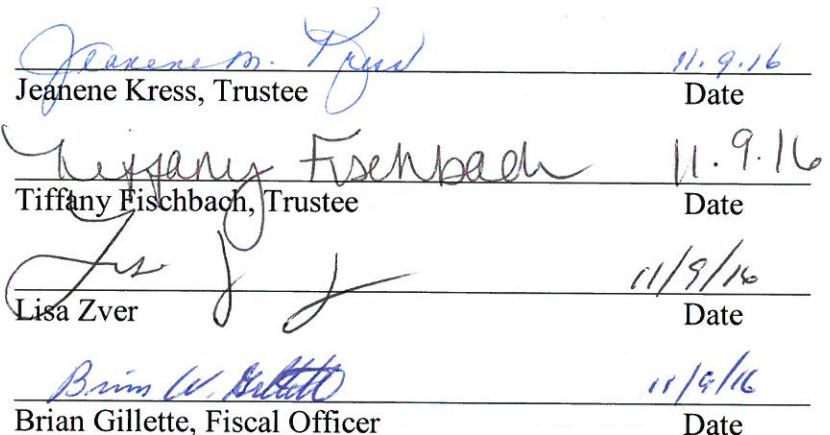 Jeanene M. Kress 11.9.16
Jeanene Kress, Trustee Date
Tiffany Fischbach 11.9.16
Tiffany Fischbach, Trustee Date
11/9/16
Lisa Zver Date
Brian W. Gillette 11/9/16
Brian Gillette, Fiscal Officer Date